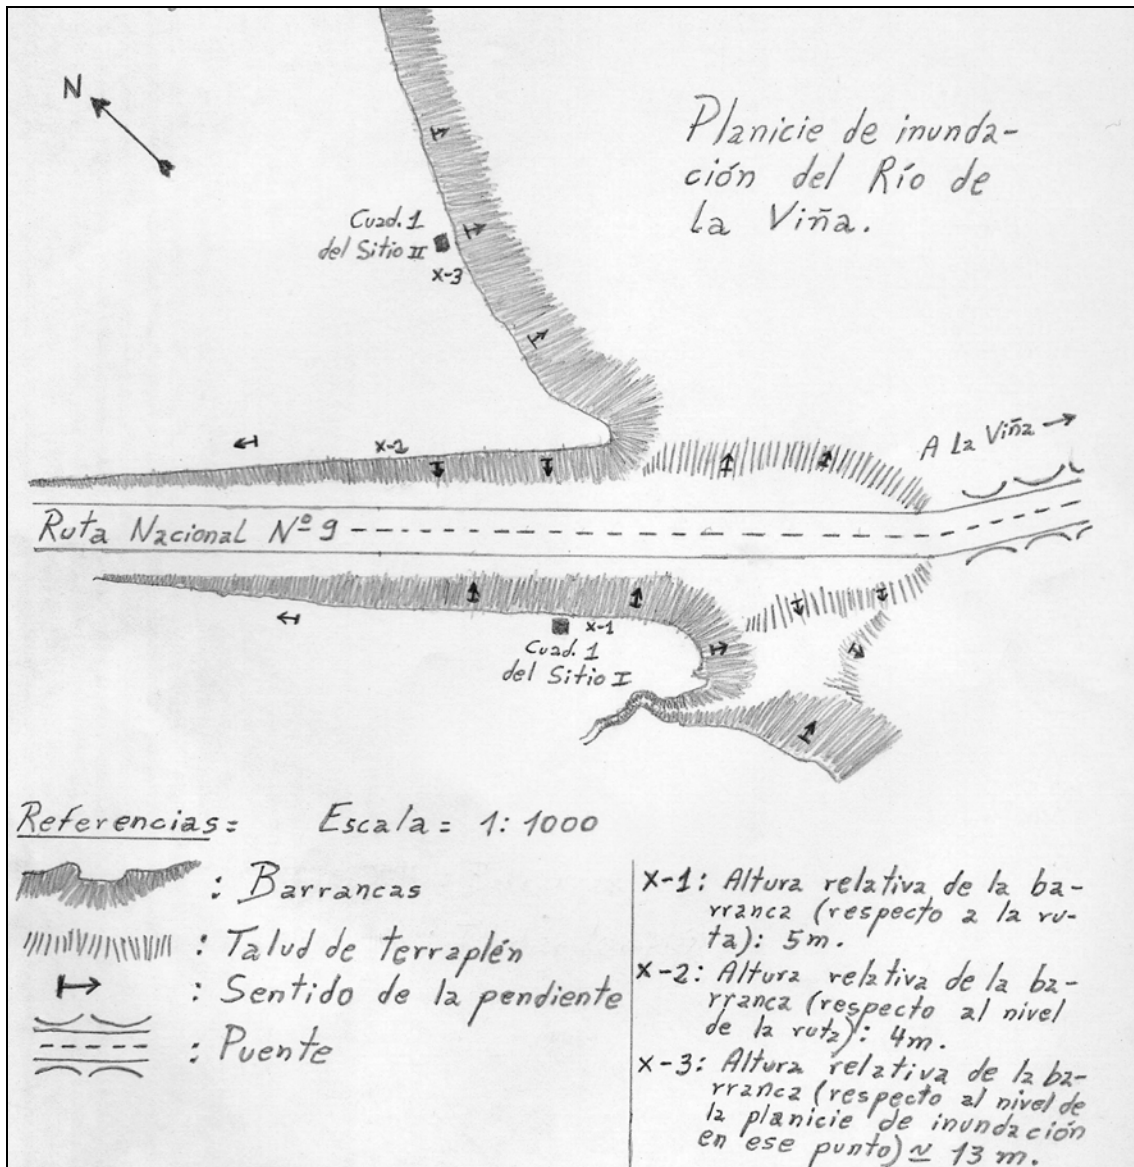 N
Planicie de inunda-
ción del Río de
la Viña.
Cuad. 1
del Sitio II
x-3
x-2
A La Viña
Ruta Nacional Nº 9
x-1
Cuad. 1
del Sitio I
Referencias= Escala= 1:1000
: Barrancas
: Talud de terraplén
: Sentido de la pendiente
: Puente
x-1: Altura relativa de la ba-
rranca (respecto a la ru-
ta): 5m.
x-2: Altura relativa de la ba-
rranca (respecto al nivel
de la ruta): 4m.
x-3: Altura relativa de la ba-
rranca (respecto al nivel de
la planicie de inundación
en ese punto) ≃ 13 m.